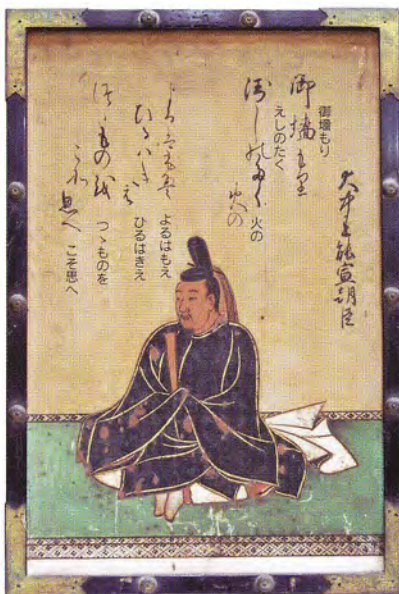 大中臣能宣朝臣
御壇もり
御墻もり
えしのたく
衛しのたく
火の
火の
よるはもえ
よるはもえ
ひるはきえ
ひるハきえ
つゝものを
つゝものを
こそ思へ
こそ
思へ